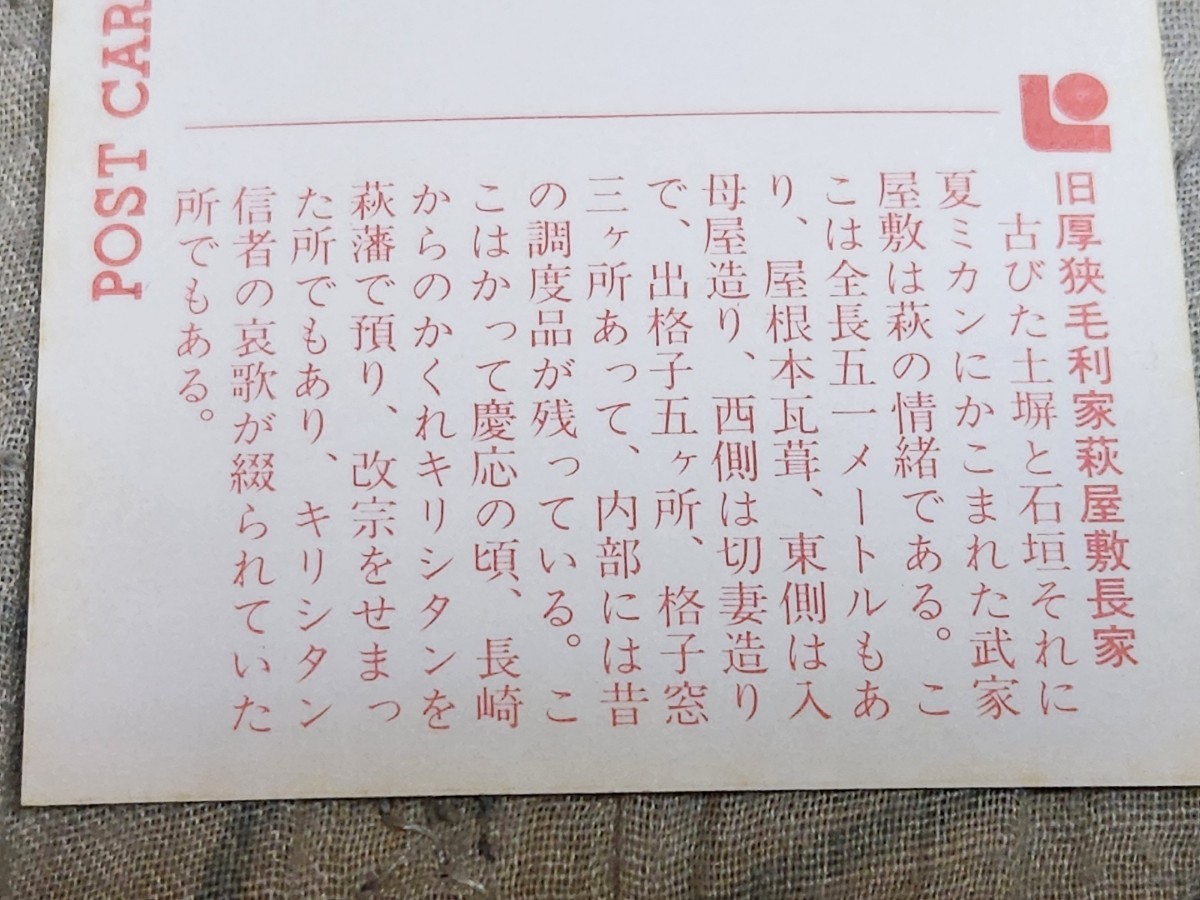 POST CAR
旧厚狭毛利家萩屋敷長家
古びた土塀と石垣それに
夏ミカンにかこまれた武家
屋敷は萩の情緒である。こ
こは全長五一メートルもあ
り、屋根本瓦葺、東側は入
母屋造り、西側は切妻造り
で、出格子五ヶ所、格子窓
三ヶ所あって、内部には昔
の調度品が残っている。こ
こはかって慶応の頃、長崎
からのかくれキリシタンを
萩藩で預り、改宗をせまっ
た所でもあり、キリシタン
信者の哀歌が綴られていた
所でもある。